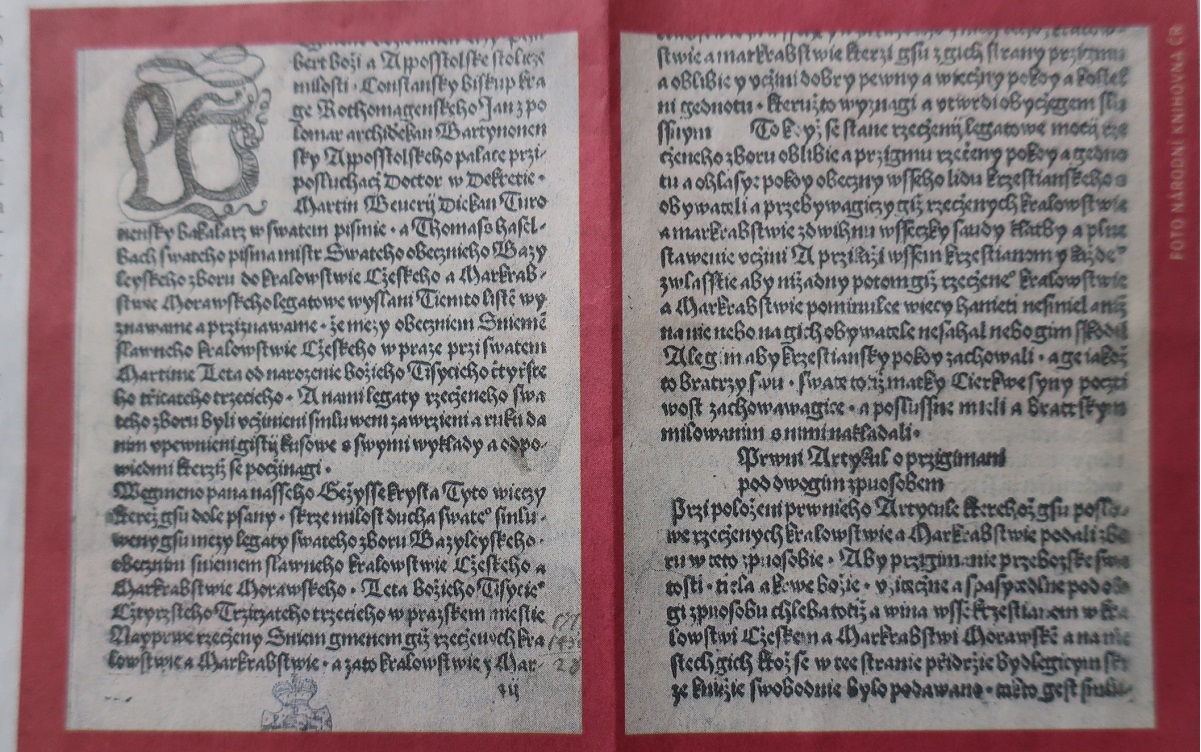 bert boží a Apposstolske stolicze
milosti · Constansky biskup kra
ge Rothomagenskeho Jan z po
lomar archidekan Bartynonen
sky Apposstolskeho palace przi-
posluchacž Doctor w Dekretie ·
Martin Beuerij Diekan Turo
nensky bakalarz w swatem pismie · a Thomass hasel-
bach swateho pisma mistr Swateho obecznieho Bazy
leyskeho zboru do kralowstwie Cžeskeho a Markrab-
stwie Morawskeho legatowe wyslani Tiemto listē wy
znawame a prziznawame · že mezy obeczniem Sniemē
slawneho kralowstwie Cžeskeho w praze przi swatem
Martinie Leta od narozenie božieho Tisycieho čtyrste
ho třicateho trzecieho · A nami legaty rzecženeho swa
teho zboru byli vcžinieni smluweni zawrzieni a ruku da
nim vpewnieni gistij kusowe s swymi wyklady a odpo-
wiedmi kterziž se pocžinagi ·
We gmeno pana nasseho Gežysse krysta Tyto wieczy
kterež gsu dole psany · skrze milost ducha swateº smlu-
weny gsu mezy legaty swateho zboru Bazyleyskeho ·
obecznim sniemem slawneho kralowstwie Cžeskeho a
Markrabstwie Morawskeho · Leta božieho Tisycieº
Cžtyrzsteho Trzitzateho trzecieho w prazskem miestie
Nayprwe rzecženy Sniem gmenem giž rzecženych kra
lowstwie a Markrabstwie · a zato kralowstwie y Mar-
aij
stwie a markrabstwie kterzi gsu z gich strany przigmu
a oblibie y vcžini dobry pewny a wiecžny pokoy a kostel
ni gednotu · kteružto wyznagi a vtwrdi obycžegem slu
ssnym Tok yž se stane rzecženij legatowe moczij rze
cženeho zboru oblibie a przigmu rzecženy pokoy a gedno
tu a ohlasy: pokoy obeczny wsseho lidu krzestianskeho s
obywateli a przebywagiczy giž rzecženych kralowstwie
a markrabstwie zdwihnu wsseczky saudy klatby a plne
stawenie vcžini A przikaži wssem krzestianom y každeº
zwlasstie aby nižadny potom giž rzecženeº kralowstwie
a Markrabstwie pominulce wiecy hanieti nesmiel aniž
na nie nebo na gich obywatele nesahal nebo gim sskodil
Ale gim aby krzestiansky pokoy zachowali · a ge iakož
to bratrzy swu · swate totiž matky Cierkwe syny pocti
wost zachowawagice · a poslussne mieli a bratrskym
milowanim s nimi nakladali·
Prwni Artykul o przigimani
pod dwogim zpuosobem
Przi položeni prwnieho Artycule kterehož gsu poslo-
we rzecženych kralowstwie a Markrabstwie podali zbo
ru w teto zpuosobie · Aby przigimanie przebožske swa
tosti · tiela a krwe božie · vžitečne a spasytedlne pod obo
gi zpuosobu chleba totiž a wina wssē krzestianom w kra
lowstwi Cžeskem a Markrabstwi Morawskē a na mie
stech gich ktož se w tee stranie přidržie bydlegicym skr
ze kniežie swobodnie bylo podawano · takto gest smlu-
FOTO NÁRODNÍ KNIHOVNA ČR